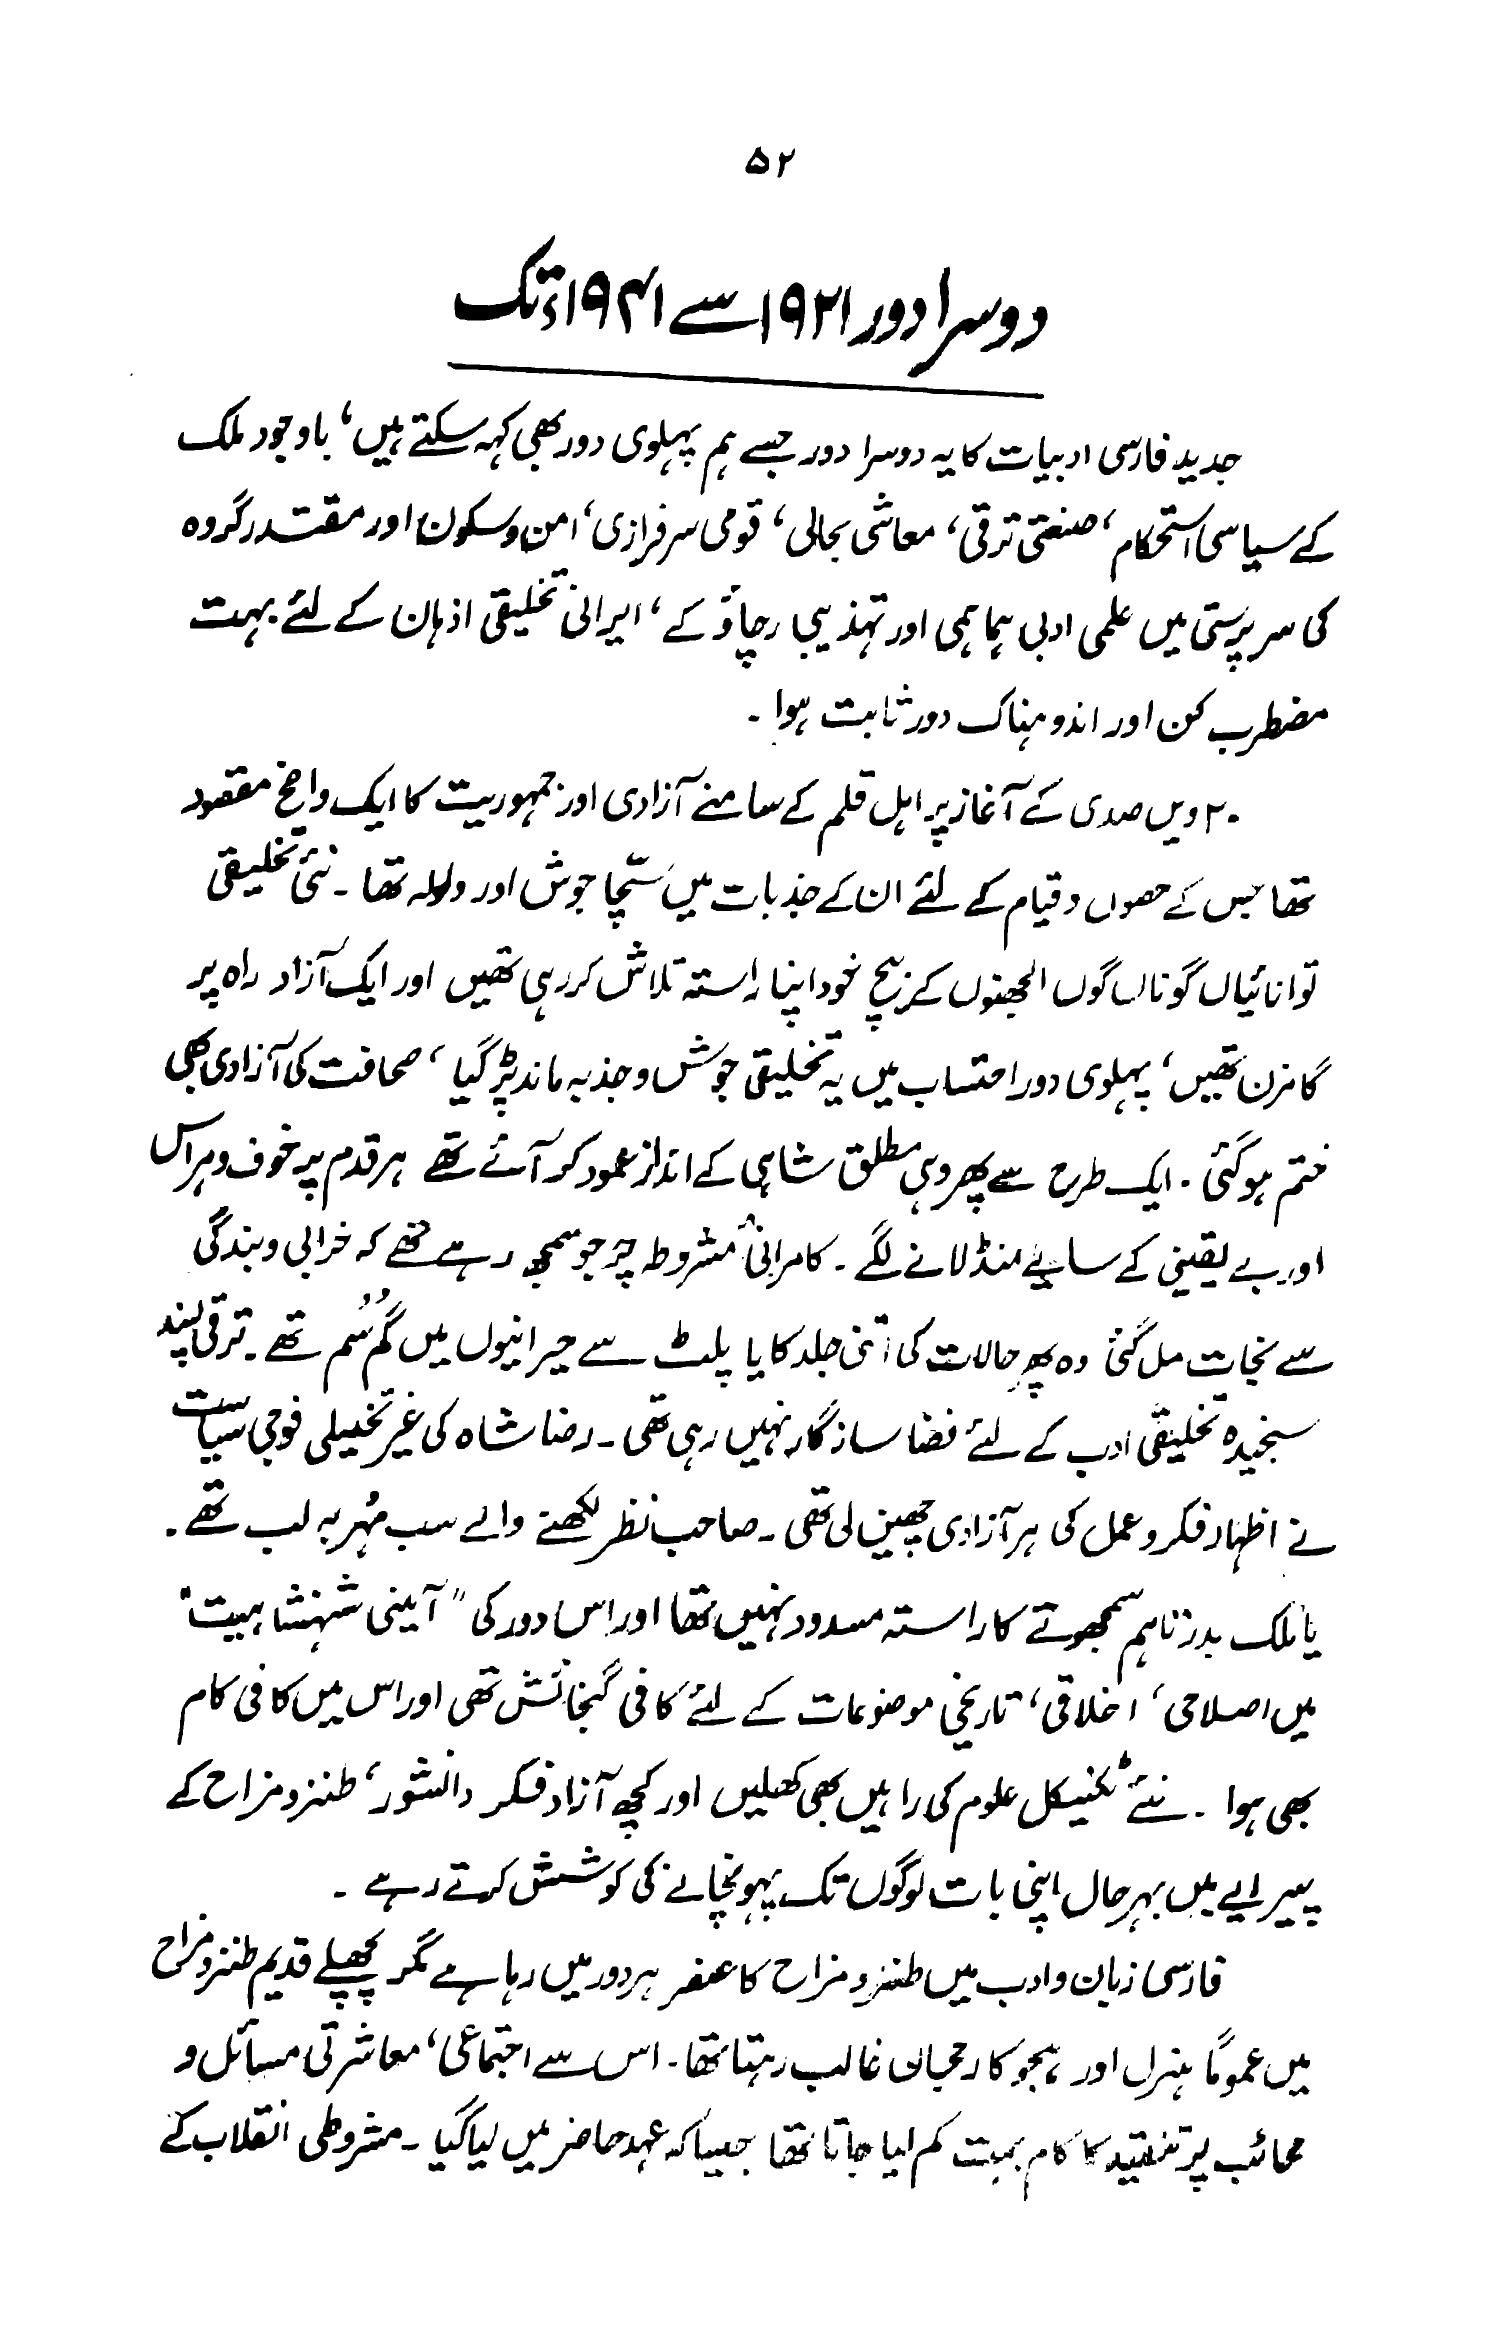 ۵۲
دوسرا دور ۱۹۲۱ سے ۱۹۴۱ء تک
جدید فارسی ادبیات کا یہ دوسرا دور جسے ہم پہلوی دور بھی کہہ سکتے ہیں، باوجود ملک
کے سیاسی استحکام، صنعتی ترقی، معاشی بحالی، قومی سرفرازی، امن و سکون اور مقتدر گروہ
کی سرپرستی میں علمی ادبی ہماہمی اور تہذیبی رچاؤ کے، ایرانی تخلیقی اذہان کے لئے بہت
مضطرب کن اور اندوہناک دور ثابت ہوا۔
۲۰ ویں صدی کے آغاز پر اہل قلم کے سامنے آزادی اور جمہوریت کا ایک واضح مقصود
تھا جس کے حصول و قیام کے لئے ان کے جذبات میں سچّا جوش اور ولولہ تھا۔ نئی تخلیقی
توانائیاں گوناں گوں الجھنوں کے بیچ خود اپنا راستہ تلاش کر رہی تھیں اور ایک آزاد راہ پر
گامزن تھیں، پہلوی دور احتساب میں یہ تخلیقی جوش و جذبہ ماند پڑ گیا، صحافت کی آزادی بھی
ختم ہو گئی۔ ایک طرح سے پھر وہی مطلق شاہی کے انداز عمود کر آئے تھے ہر قدم پر خوف و ہراس
اور بے یقینی کے سایے منڈلانے لگے۔ کامرانیٔ مشروطہ پر جو سمجھ رہے تھے کہ خرابی و بندگی
سے نجات مل گئی وہ پھر حالات کی اتنی جلد کایا پلٹ سے حیرانیوں میں گُم سُم تھے۔ ترقی پسند
سنجیدہ تخلیقی ادب کے لئے فضا سازگار نہیں رہی تھی۔ رضا شاہ کی غیر تخییلی فوجی سیاست
نے اظہار فکر و عمل کی ہر آزادی چھین لی تھی۔ صاحب نظر لکھنے والے سب مُہر بہ لب تھے۔
یا ملک بدر تاہم سمجھوتے کا راستہ مسدود نہیں تھا اور اس دور کی "آئینی شہنشاہیت"
میں اصلاحی، اخلاقی، تاریخی موضوعات کے لئے کافی گنجائش تھی اور اس میں کافی کام
بھی ہوا۔ نئے ٹکنیکل علوم کی راہیں بھی کھلیں اور کچھ آزاد فکر دانشور، طنز و مزاح کے
پیرایے میں بہر حال اپنی بات لوگوں تک پہونچانے کی کوشش کرتے رہے۔
فارسی زبان و ادب میں طنز و مزاح کا عنصر ہر دور میں رہا ہے مگر پچھلے قدیم طنز و مزاح
میں عموماً ہزل اور ہجو کا رجحان غالب رہتا تھا۔ اس سے اجتماعی، معاشرتی مسائل و
مصائب پر تنقید کا کام بہت کم لیا جاتا تھا جیسا کہ عہد حاضر میں لیا گیا۔ مشروطی انقلاب کے